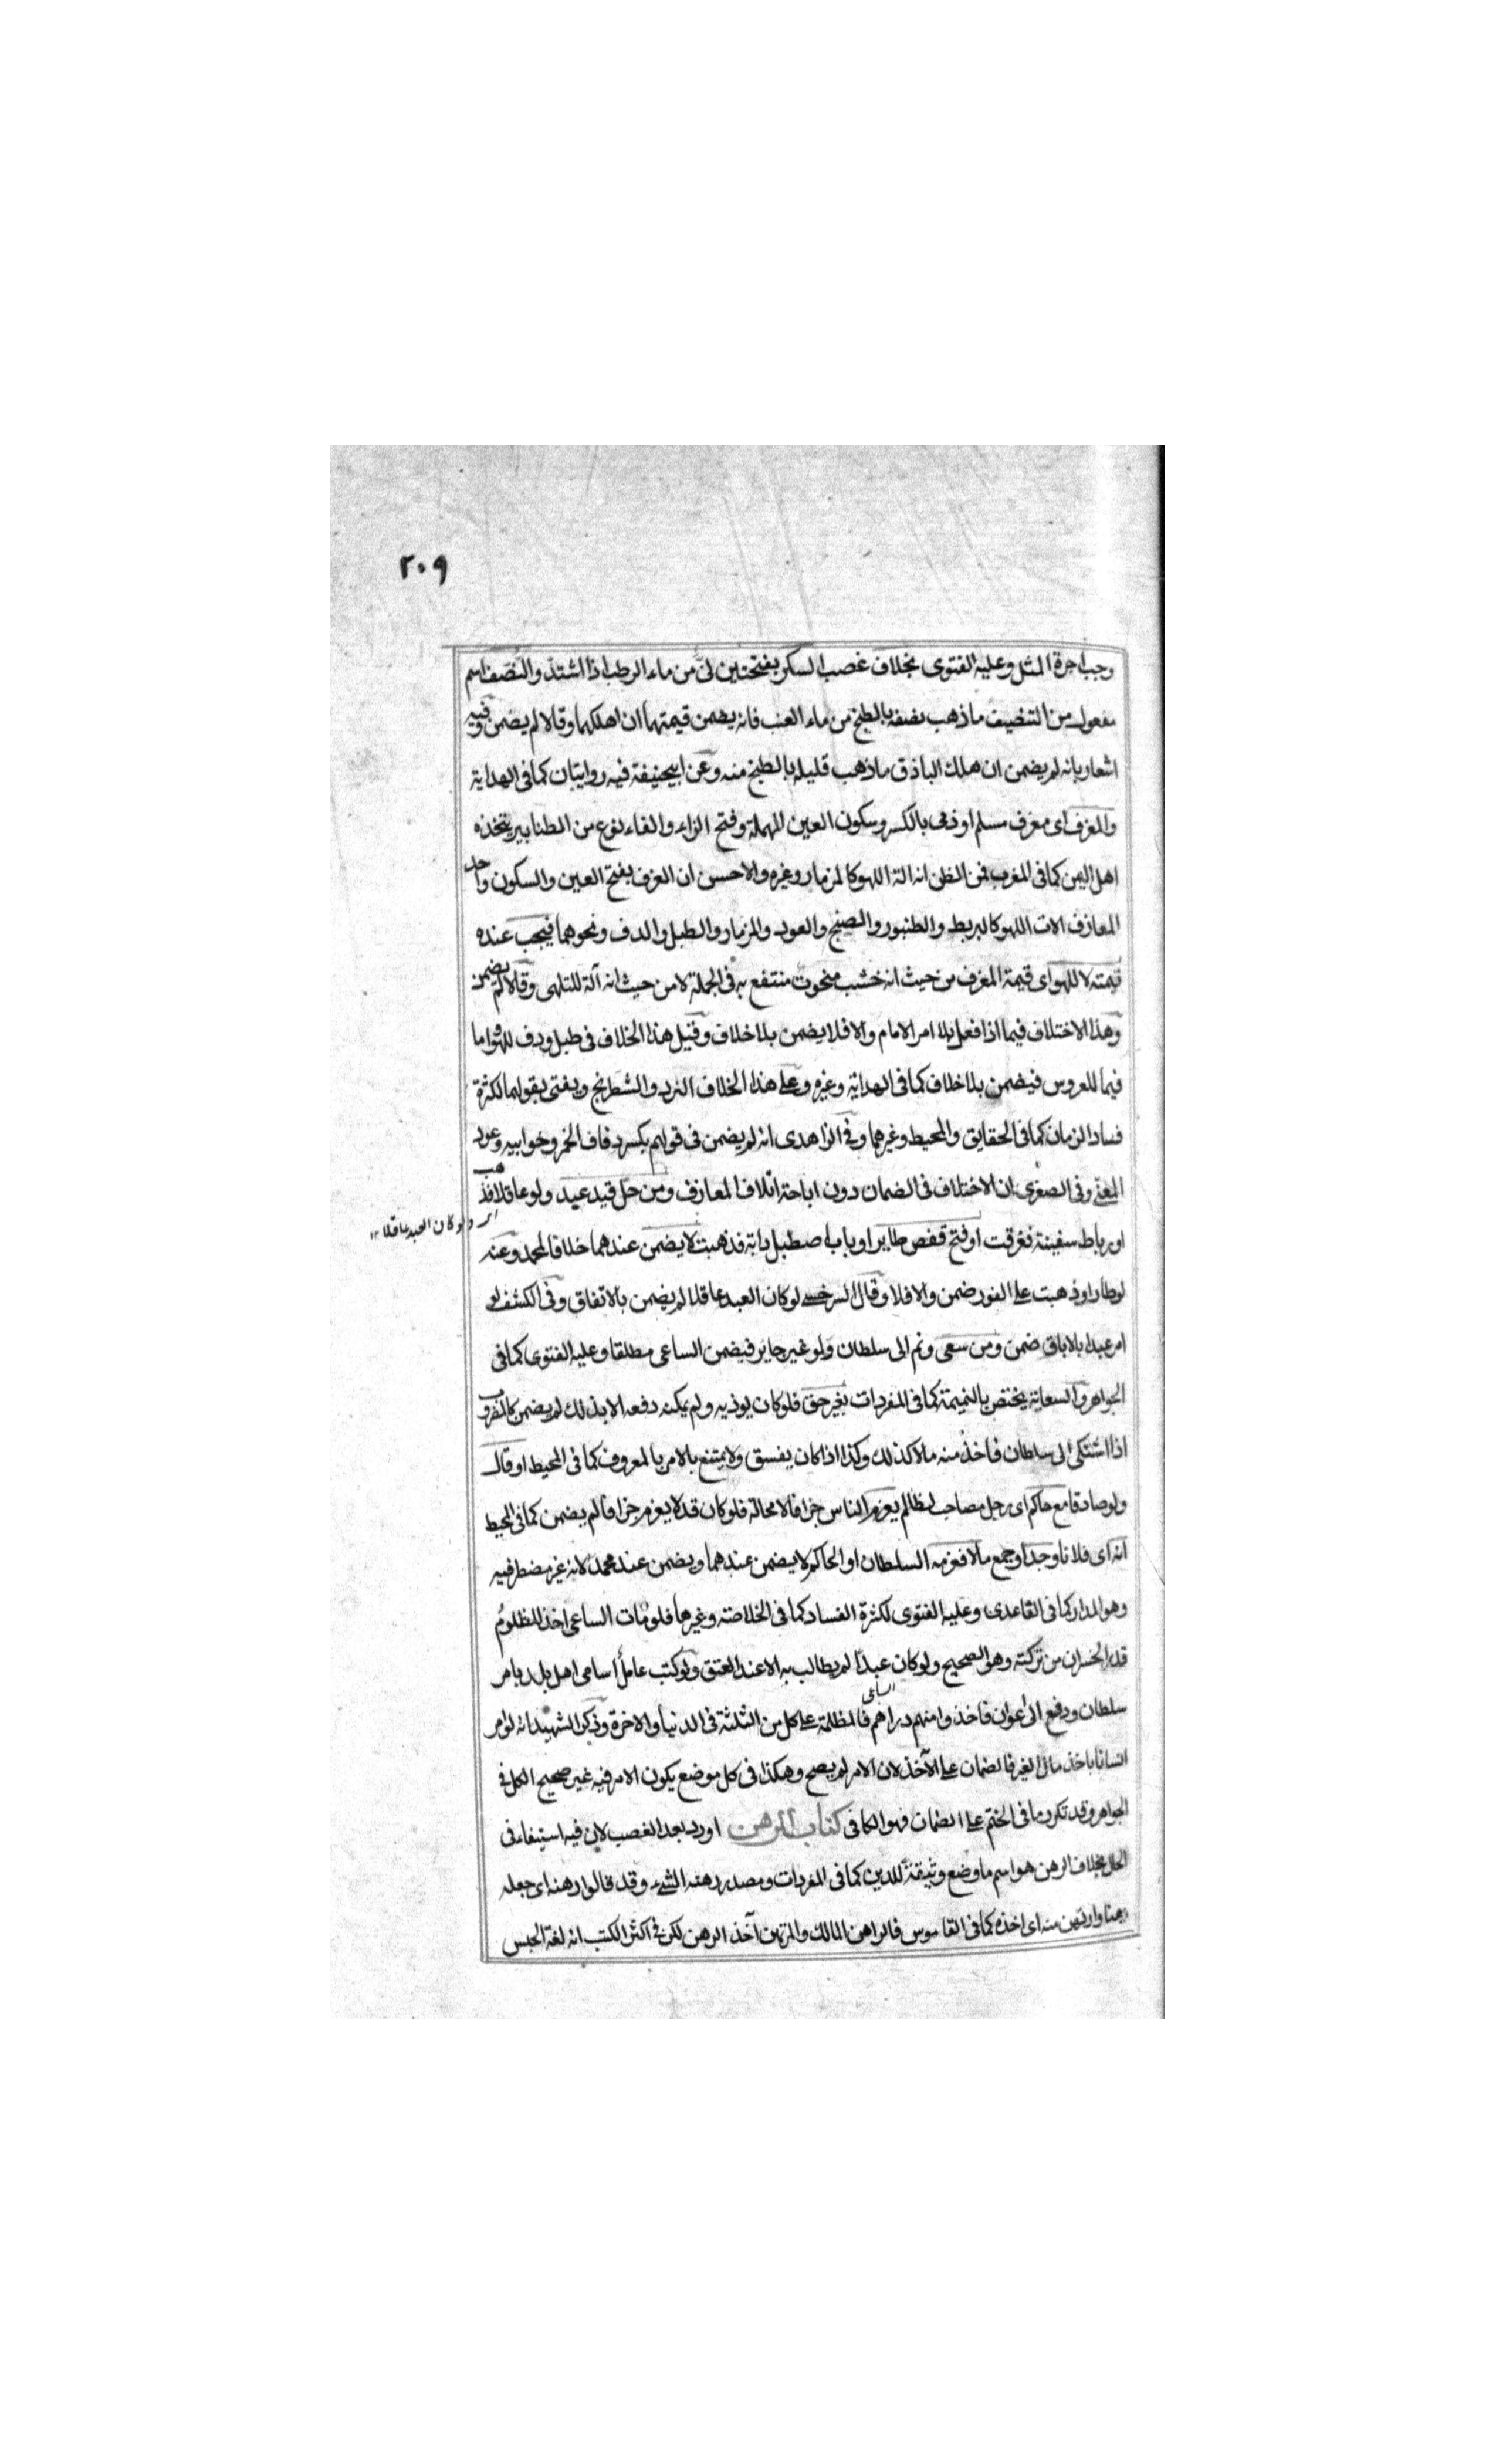 ٢٠٩
وجب اجرة المثل وعليه الفتوى بخلاف غصب السكر بفتحتين نى من ماء الرطب اذا اشتد والنصف اسم
مفعول من التنصيف ما ذهب نصفه بالطبخ من ماء العنب فانه يضمن قيمتهما ان اهلكهما وقالا لم يضمن وفيه
اشعار بانه لم يضمن ان هلك الباذق ما ذهب قليله بالطبخ منه وعن ابيحنيفة فيه روايتان كما فى الهداية
والمعزف اى معزف مسلم او ذمى بالكسر وسكون العين المهملة وفتح الزاء والفاء نوع من الطنابير يتخذه
اهل اليمن كما فى المغرب فمن الظن انه الة اللهو كالمزمار وغيره والاحسن ان العزف بفتح العين والسكون واحد
المعازف الات اللهو كالبربط والطنبور والصنج والعود والمزمار والطبل والدف ونحوهما فيجب عنده
قيمته لا للهو اى قيمة المعزف من حيث انه خشب منحوت منتفع به فى الجملة لا من حيث انه آلة للتلهى وقالا لم يضمن
وهذا الاختلاف فيما اذا فعل بلا امر الامام والا فلا يضمن بلا خلاف وقيل هذا الخلاف فى طبل ودف للهو واما
فيما للعروس فيضمن بلا خلاف كما فى الهداية وغيره وعلى هذا الخلاف النرد والشطرنج ويفتى بقولهما لكثرة
فساد الزمان كما فى الحقايق والمحيط وغيرهما وفى الزاهدى انه لم يضمن فى قولهم بكسر دفاف الخمر وخوابيه وعود
المغنى وفى الصغرى ان الاختلاف فى الضمان دون اباحة اتلاف المعازف ومن حل قيد عبد ولو عاقلا فذهب
اى ولو كان العبد عاقلا ١٢
او رباط سفينة فغرقت او فتح قفص طاير او باب اصطبل دابة فذهبت لا يضمن عندهما خلافا لمحمد وعنه
لو طار او ذهبت على الفور ضمن والا فلا وقال السرخسى لو كان العبد عاقلا لم يضمن بالاتفاق وفى الكشف لو
امر عبدا بالاباق ضمن ومن سعى ونم الى سلطان ولو غير جاير فيضمن الساعى مطلقا وعليه الفتوى كما فى
الجواهر والسعاية يختص بالنميمة كما فى المفردات بغير حق فلو كان يوذيه ولم يمكنه دفعه الا بذلك لم يضمن كالمضروب
اذا اشتكى الى سلطان فاخذ منه مالا كذلك وكذا اذا كان يفسق ولا يمتنع بالامر بالمعروف كما فى المحيط او قال
ولو صادقا مع حاكم اى رجل مصاحب لظالم يغرم الناس جزافا لا محالة فلو كان قد لا يغرم جزافا لم يضمن كما فى المحيط
انه اى فلانا وجد او جمع مالا فغرمه السلطان او الحاكم لا يضمن عندهما ويضمن عند محمد لانه غير مضطر فيه
وهو المدار كما فى القاعدى وعليه الفتوى لكثرة الفساد كما فى الخلاصة وغيرها فلو مات الساعى اخذ المظلوم
قدر الخسران من تركته وهو الصحيح ولو كان عبدا لم يطالب به الا عند العتق ولو كتب عامل اسامى اهل بلد بامر
الساعى
سلطان ودفع الى اعوان فاخذوا منهم دراهم فالمظلمة على كل من الثلثة فى الدنيا والاخرة وذكر الشهيد انه لو امر
انسانا باخذ مال الغير فالضمان على الآخذ لان الامر لم يصح وهكذا فى كل موضع يكون الامر فيه غير صحيح الكل فى
الجواهر وقد تكرر ما فى الختم على الضمان فهو الكافى كتاب الرهن اورد بعد الغصب لان فيه استيفاء فى
الحال بخلاف الرهن هو اسم ما وضع وثيقة للدين كما فى المفردات ومصدر رهنه الشىء وقد قالوا رهنه اى جعله
رهنا وارتهن منه اى اخذه كما فى القاموس فالراهن المالك والمرتهن آخذ الرهن لكن فى اكثر الكتب انه لغة الحبس